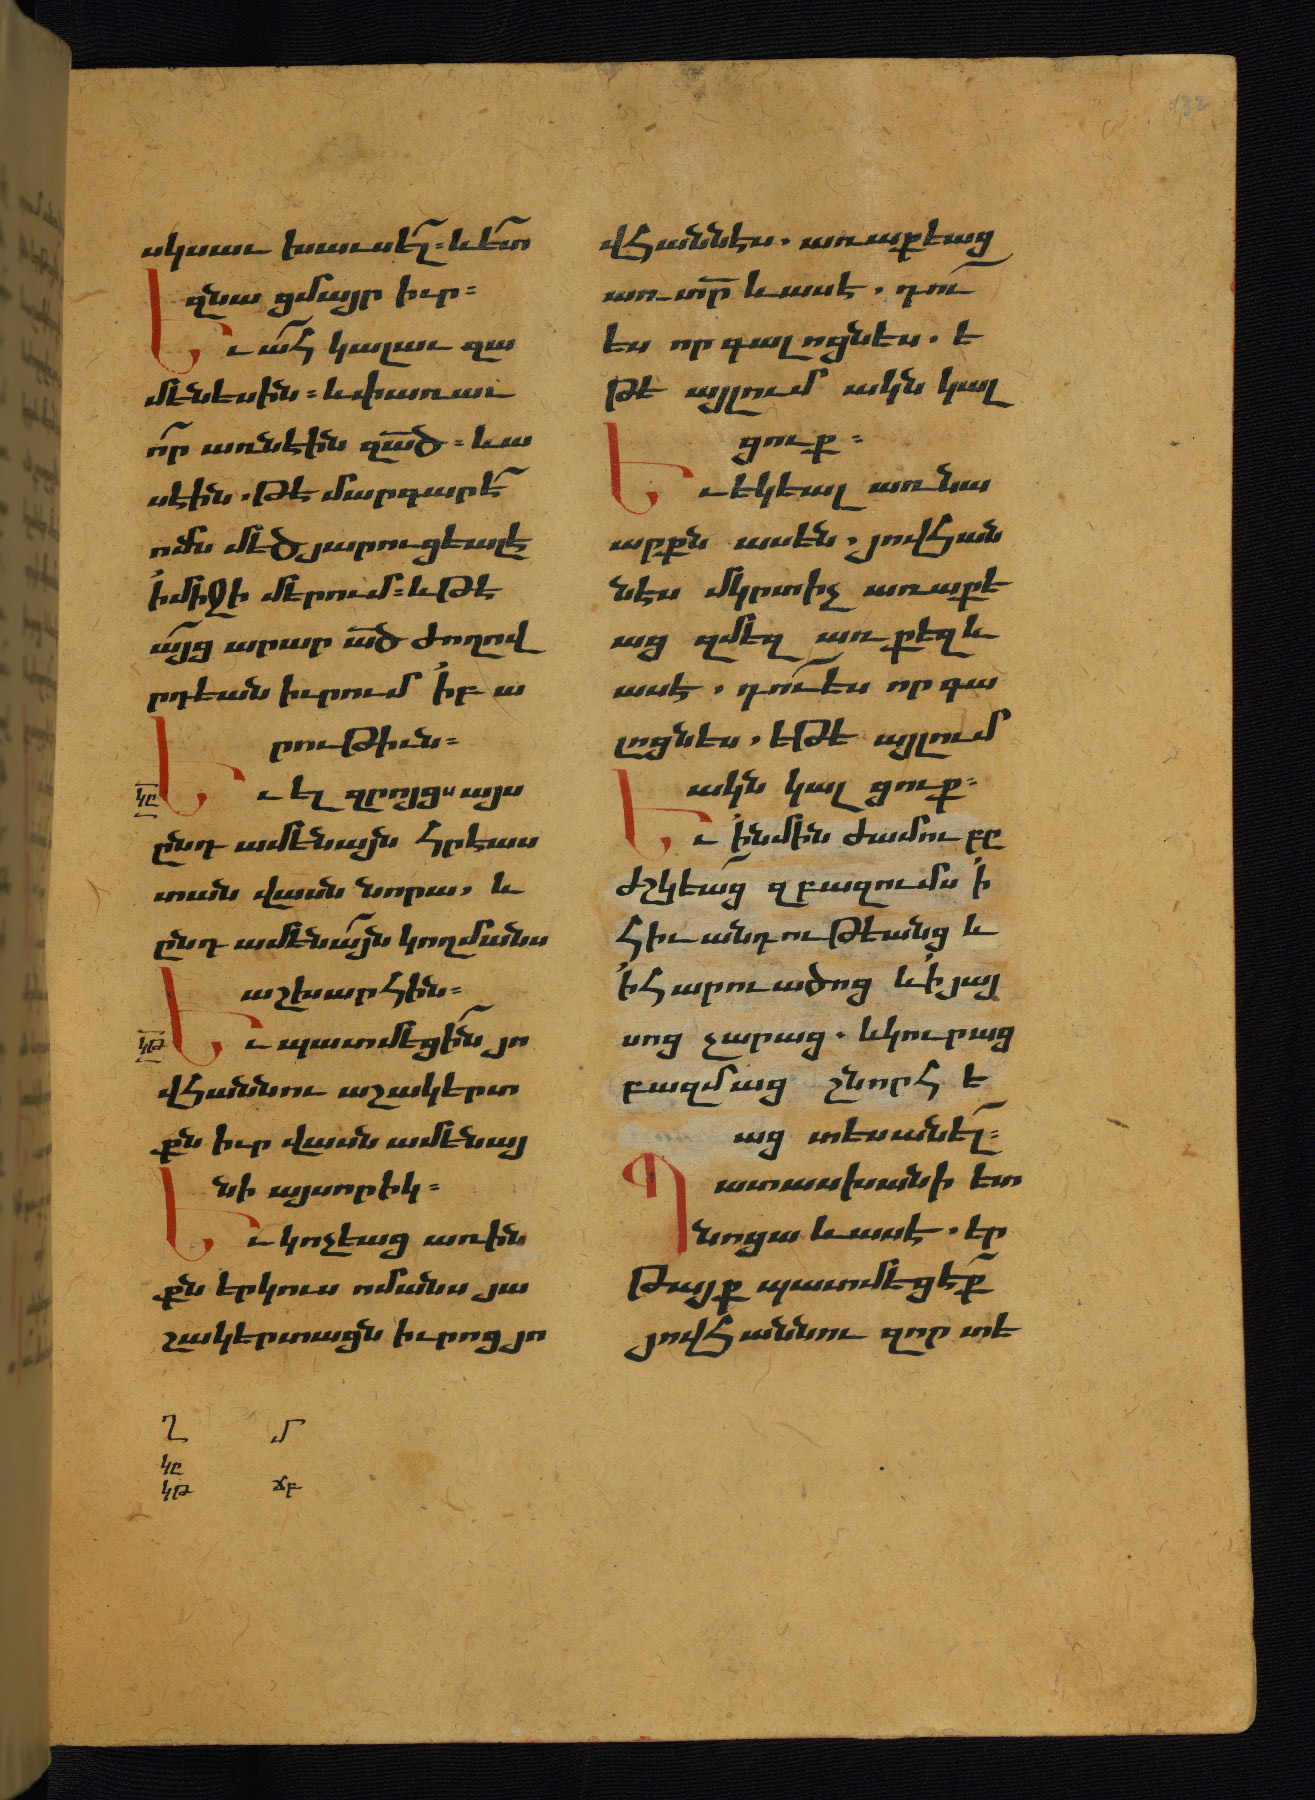 132
սկսաւ խաւսել։ և ետ
զնա ցմայր իւր։
Եւ ահ կալաւ զա
մենեսին։ և փառաւ
որ առնէին զած։ և ա
սէին. թէ մարգարէ
ոմն մեծ յարուցեալ է
ի միջի մերում։ և թէ
այց արար ած ժողով
րդեան իւրում ի բ ա
րութիւն։
կը
Եւ ել զրոյցս այս
ընդ ամենայն հրէաս
տան վասն նորա, և
ընդ ամենայն կողմանս
աշխարհին։
կթ
Եւ պատմեցին յո
վհաննու աշակերտ
քն իւր վասն ամենայ
նի այսորիկ։
Եւ կոչեաց առ ին
քն երկուս ոմանս յա
շակերտացն իւրոց յո
վհաննէս. առաքեաց
առ տր և ասէ. դու
ես որ գալոցն ես. ե
թե այլում ակն կալ
ցուք։
Եւ եկեալ առ նա
արքն ասեն, յովհան
նէս մկրտիչ առաքե
աց զմեզ առ քեզ և
ասէ. դու ես որ գա
լոցն ես, եթե այլում
ակն կալցուք։
Եւ ինմին ժամու բը
ժշկեաց զբազումս ի
հիւանդութեանց և
ի հարուածոց և ի յայ
սոց չարաց. և կուրաց
բազմաց շնորհ ե
աց տեսանել։
Պատասխանի ետ
նոցա և ասէ. եր
թայք պատմեցէք
յովհաննու զոր տե
Ղ մ
կը
կթ ճբ